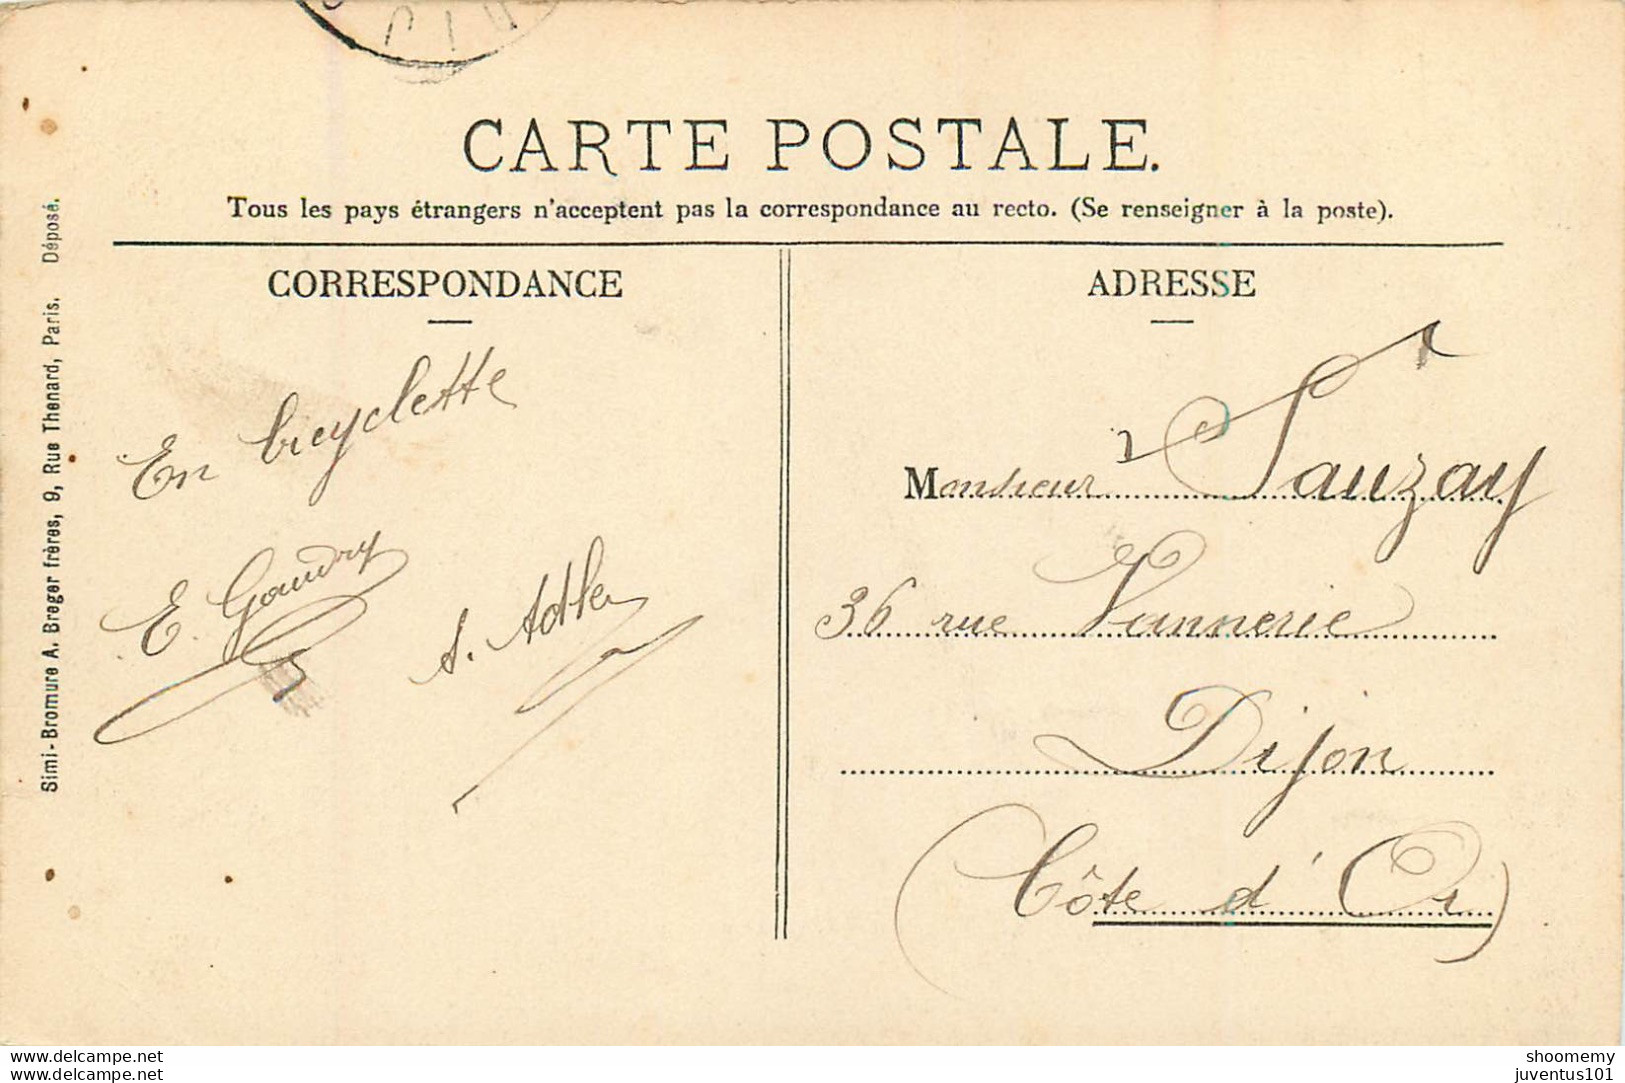 CARTE POSTALE.
Tous les pays étrangers n'acceptent pas la correspondance au recto. (Se renseigner à la poste).
Simi-Bromure A. Breger frères, 9, Rue Thenard, Paris. Déposé.
CORRESPONDANCE
En bicyclette
E. Gaudry
A. Adler
ADRESSE
Monsieur Sauzay
36 rue Vannerie
Dijon
(Côte d'Or)
www.delcampe.net
www.delcampe.net
shoomemy
juventus101